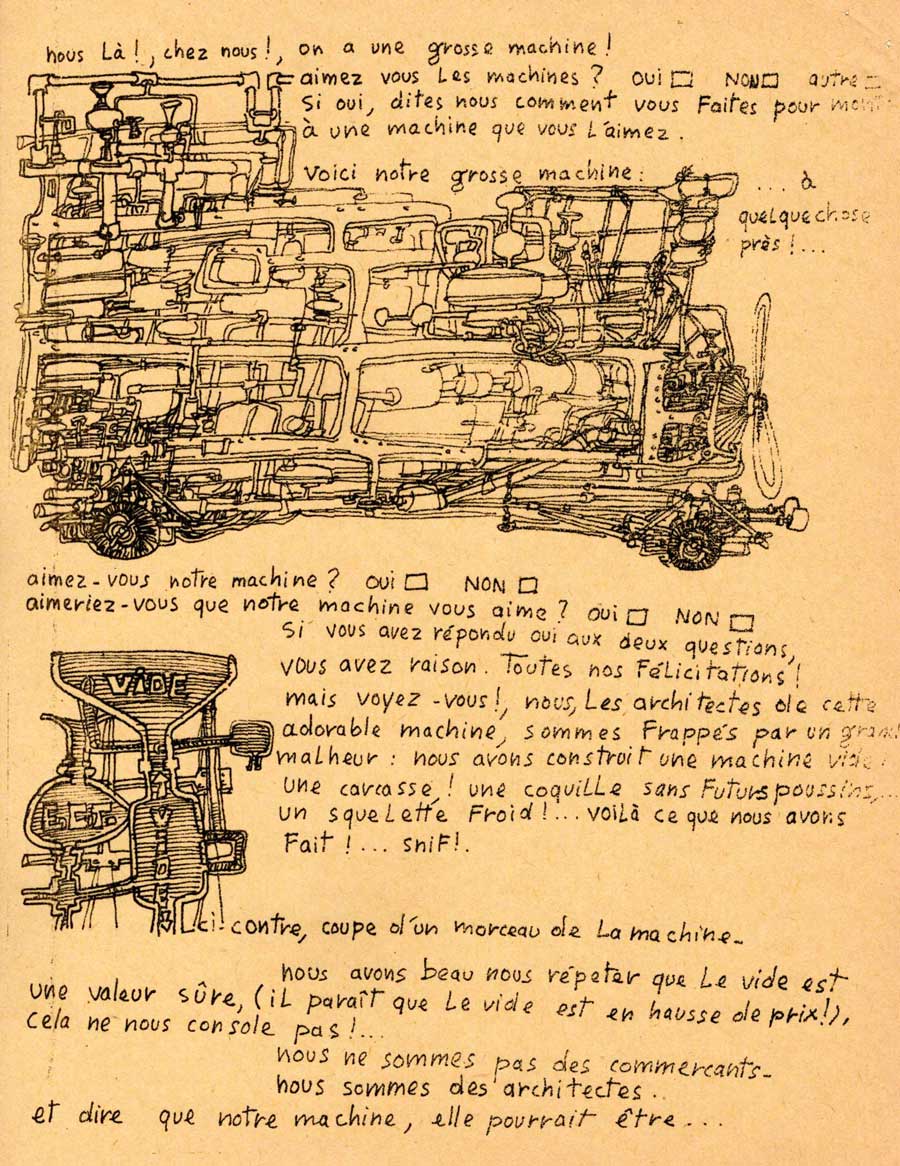 nous Là!, chez nous!, on a une grosse machine!
aimez vous Les machines? oui □ NON □ autre □
Si oui, dites nous comment vous Faites pour
à une machine que vous L'aimez.
Voici notre grosse machine:
... à
quelque chose
près!...
aimez-vous notre machine? oui □ NON □
aimeriez-vous que notre machine vous aime? oui □ NON □
Si vous avez répondu oui aux deux questions,
vous avez raison. Toutes nos Félicitations!
mais voyez-vous!, nous, Les architectes de cette
adorable machine, sommes Frappés par un grand
malheur: nous avons construit une machine vide!
une carcasse! une coquille sans Futurs poussins,...
un squelette Froid!... voilà ce que nous avons
Fait!... sniF!.
VIDE
VIDE
ci-contre, coupe d'un morceau de La machine-
nous avons beau nous répeter que Le vide est
une valeur sûre, (iL paraît que Le vide est en hausse de prix!),
cela ne nous console pas!...
nous ne sommes pas des commercants-
nous sommes des architectes..
et dire que notre machine, elle pourrait être...